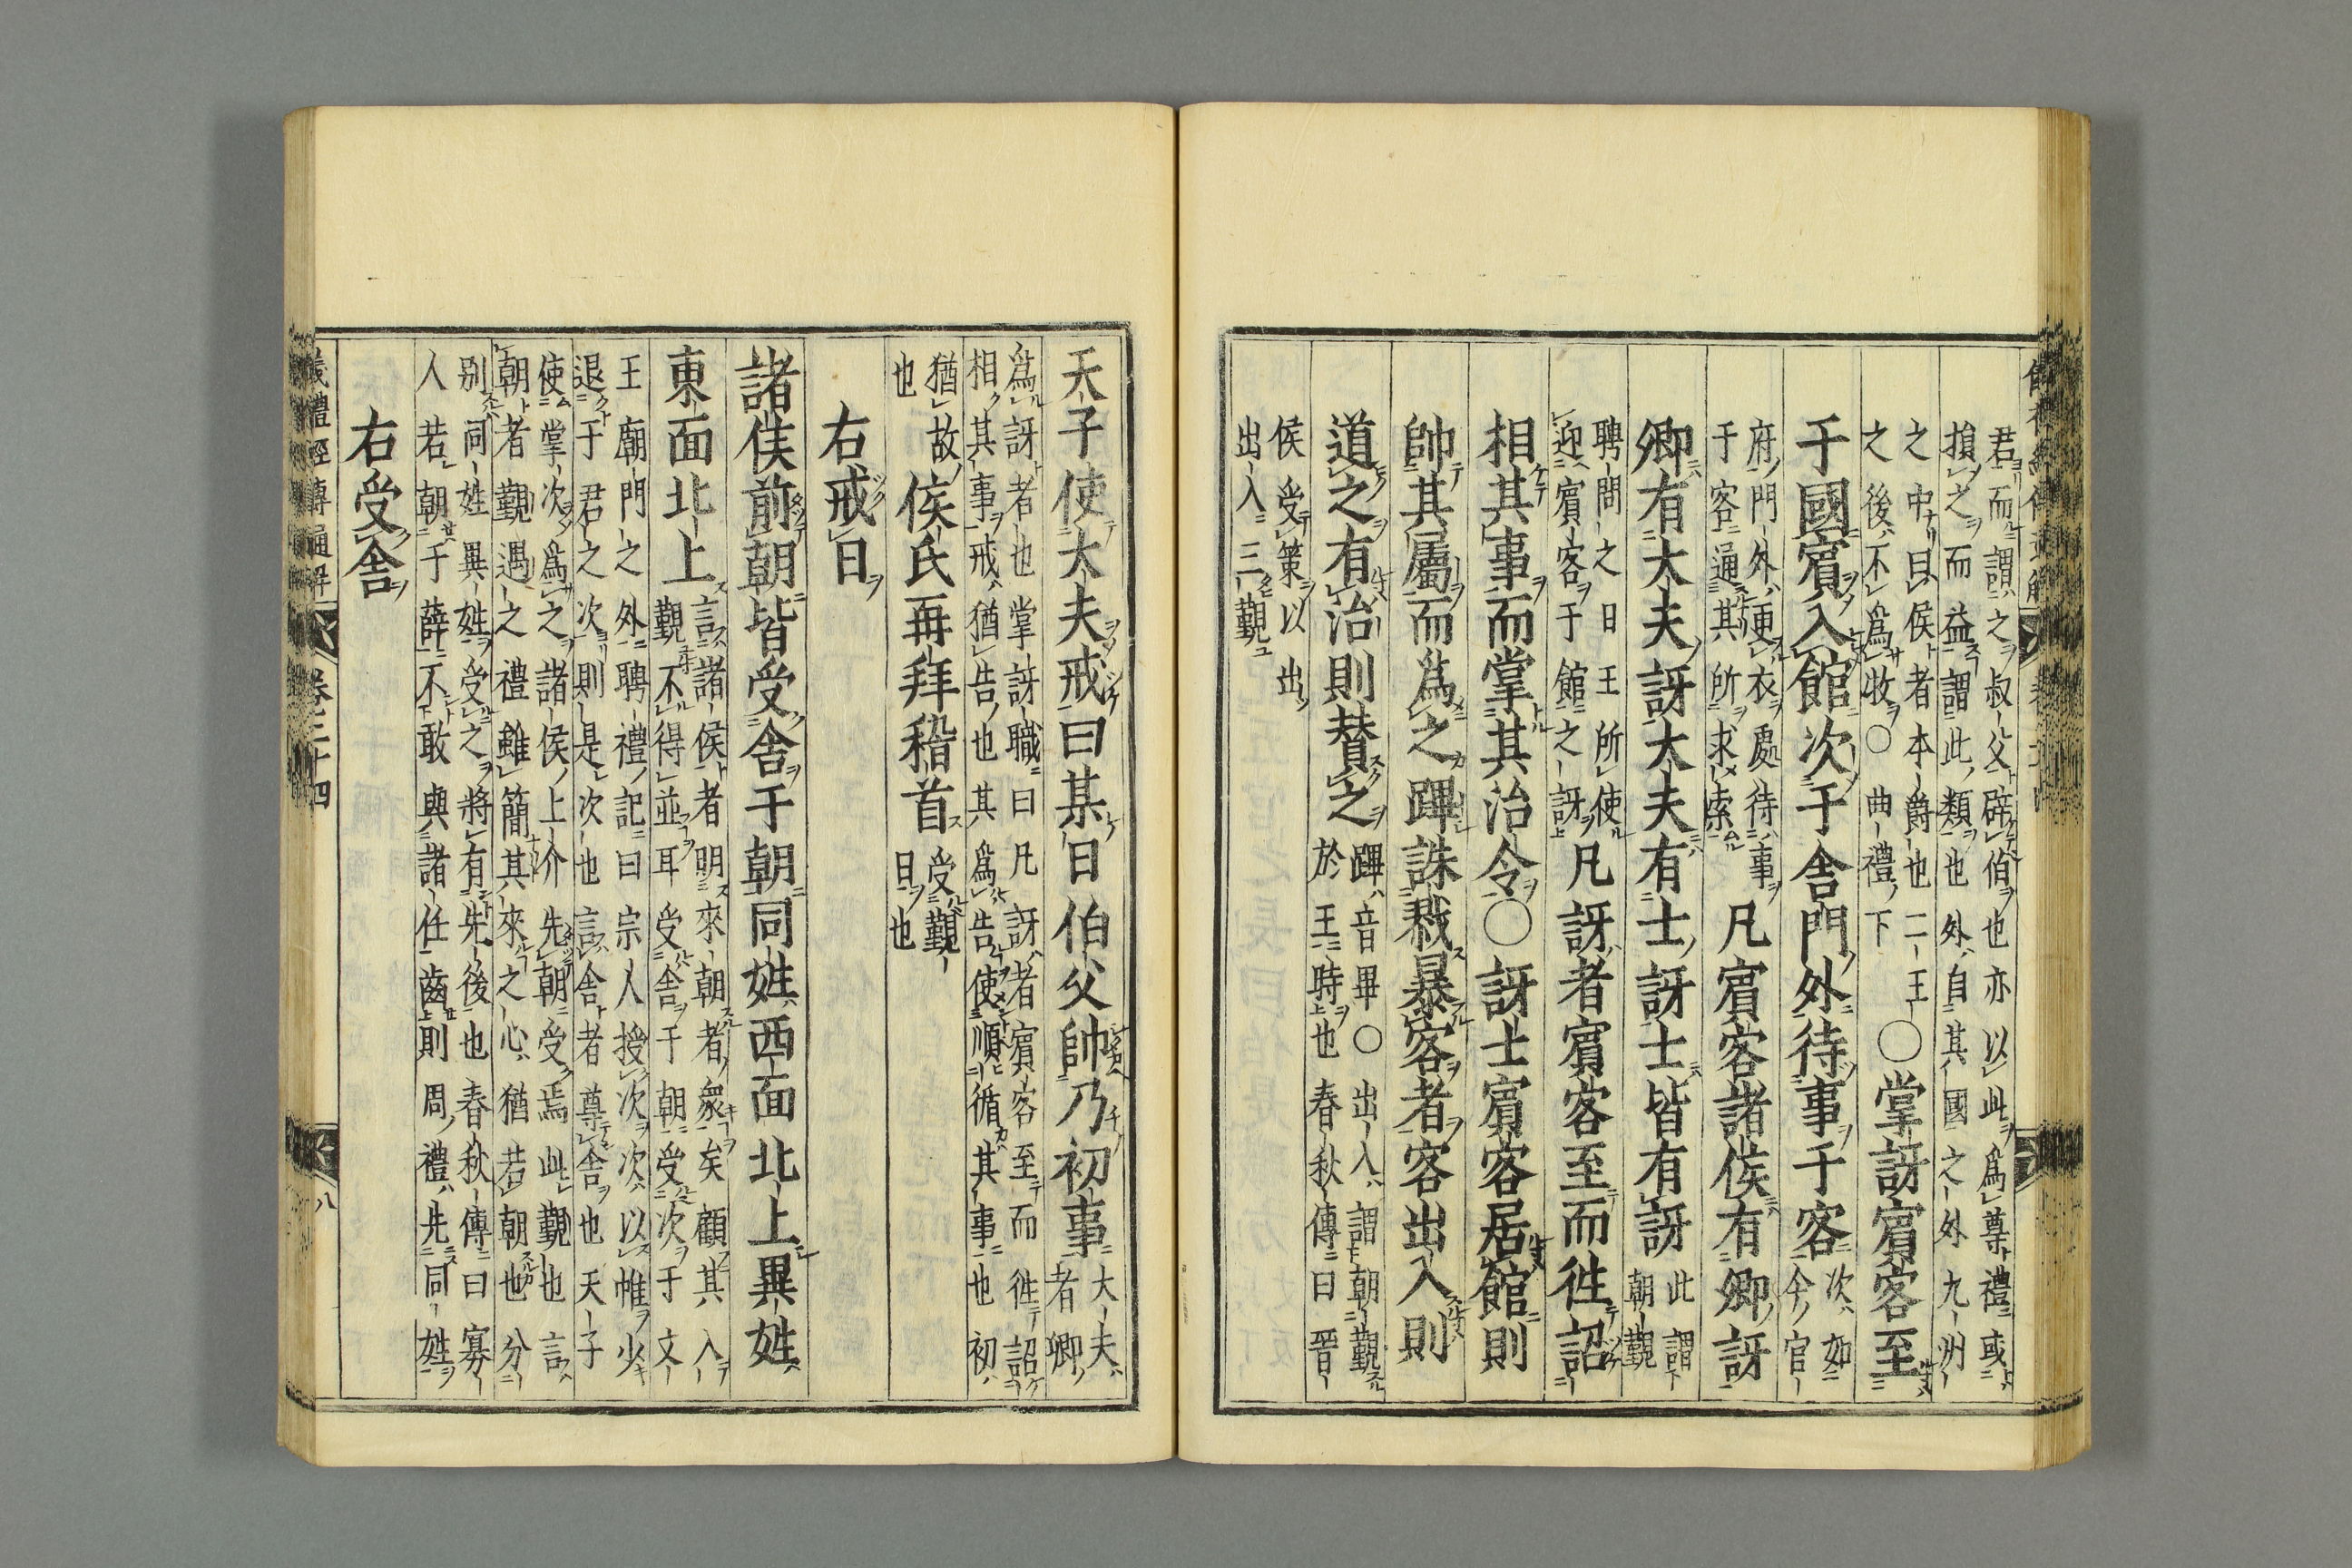 君而謂之叔父辟伯也亦以此爲尊禮或
損之而益謂此類也外自其國之外九州
之中曰侯者本爵也二王
之後不爲牧○曲禮下
○掌訝賓客至
于國賓入館次于舍門外待事于客
次如
今官
府門外更衣處待事
于客通其所求索
凡賓客諸侯有卿訝
卿有大夫訝大夫有士訝士皆有訝
此謂
朝覲
聘問之日王所使
迎賓客于館之訝
凡訝者賓客至而徃詔
相其事而掌其治令○訝士賓客居館則
帥其屬而爲之蹕誅戮暴客者客出入則
道之有治則賛之
蹕音畢○出入謂朝覲
於王時也春秋傳曰晉
侯受策以出
出入三覲
天子使大夫戒曰某日伯父帥乃初事
大夫
者卿
爲訝者也掌訝職曰凡訝者賓客至而徃詔
相其事戒猶告也其爲告使順循其事也初
猶故
也
侯氏再拜稽首
受覲
日也
右戒日
諸侯前朝皆受舍于朝同姓西面北上異姓
東面北上
言諸侯者明來朝者衆矣顧其入
覲不得並耳受舍于朝受次于文
王廟門之外聘禮記曰宗人授次次以帷少
退于君之次則是次也言舍者尊舍也天子
使掌次爲之諸侯上介先朝受焉此覲也言
朝者覲遇之禮雖簡其來之心猶若朝也分
別同姓異姓受之將有先後也春秋傳曰寡
人若朝于薛不敢與諸任齒則周禮先同姓
右受舍
儀禮經傳通解 卷二十四 八